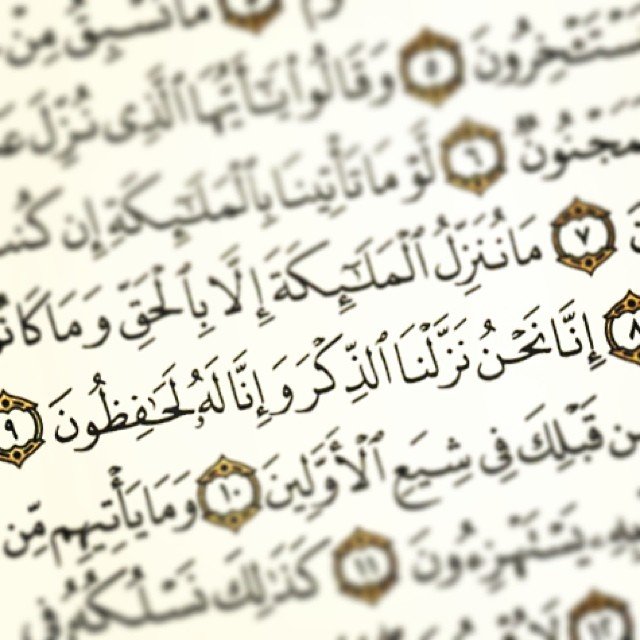 مَّا تَسْبِقُ مِنْ
سْتَـْٔخِرُونَ ٥ وَقَالُوا۟ يَـٰٓأَيُّهَا ٱلَّذِى نُزِّلَ عَ
لَمَجْنُونٌ ٦ لَّوْ مَا تَأْتِينَا بِٱلْمَلَـٰٓئِكَةِ إِن كُنتَ
٧ مَا نُنَزِّلُ ٱلْمَلَـٰٓئِكَةَ إِلَّا بِٱلْحَقِّ وَمَا كَانُو
٨ إِنَّا نَحْنُ نَزَّلْنَا ٱلذِّكْرَ وَإِنَّا لَهُۥ لَحَـٰفِظُونَ ٩
مِن قَبْلِكَ فِى شِيَعِ ٱلْأَوَّلِينَ ١٠ وَمَا يَأْتِيهِم مِّن
بِهِۦ يَسْتَهْزِءُونَ ١١ كَذَٰلِكَ نَسْلُكُهُۥ فِى
١٢